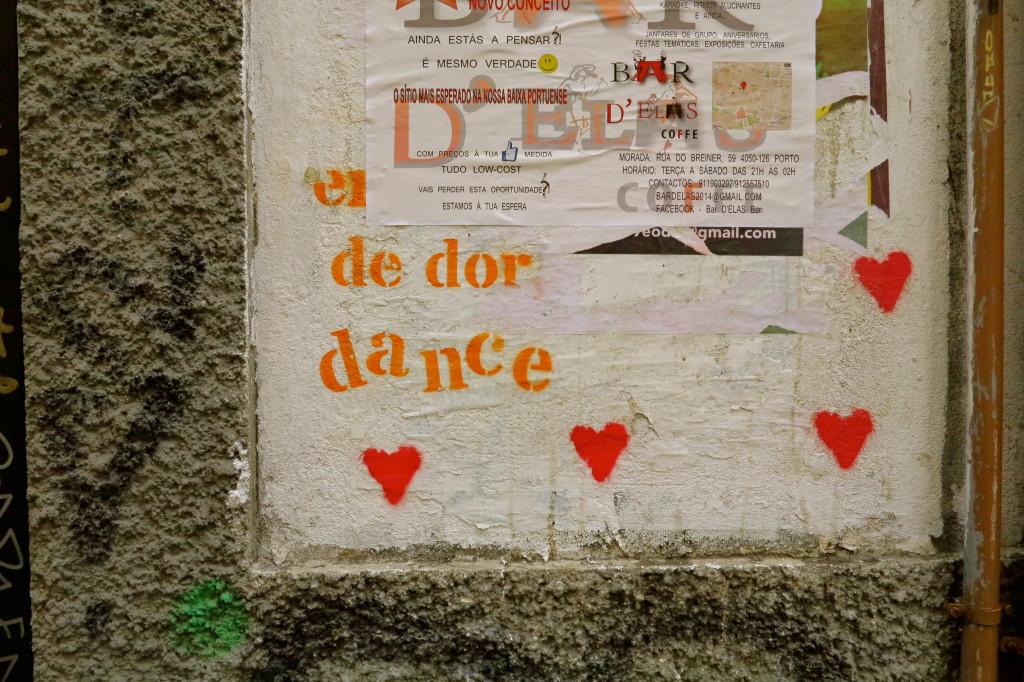 NOVO CONCEITO
AINDA ESTÁS A PENSAR?!
É MESMO VERDADE
O SÍTIO MAIS ESPERADO NA NOSSA BAIXA PORTUENSE
COM PREÇOS À TUA MEDIDA
TUDO LOW-COST
VAIS PERDER ESTA OPORTUNIDADE?
ESTAMOS À TUA ESPERA
KARAOKE, RITMOS ALUCINANTES
E AINDA,
JANTARES DE GRUPO, ANIVERSÁRIOS,
FESTAS TEMÁTICAS, EXPOSIÇÕES, CAFETARIA
BAR
D'ELAS
COFFE
MORADA: RUA DO BREINER, 59 4050-126 PORTO
HORÁRIO: TERÇA A SÁBADO DAS 21H ÀS 02H
CONTACTOS: 911903297/912557510
BARDELAS2014@GMAIL.COM
FACEBOOK - Bar D'ELAS Bar
BAR
D'ELAS
@gmail.com
de dor
dance